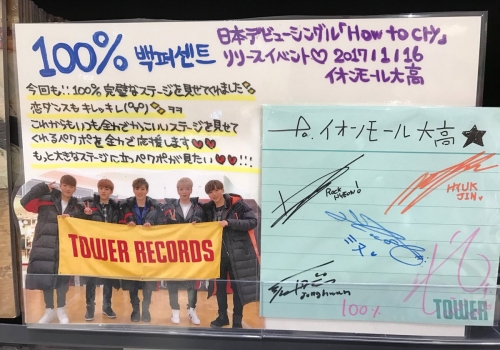 100% 백퍼센트
日本デビューシングル「How to cry」
リリースイベント♡ 2017/1/16
イオンモール大高
今回も!! 100% 完璧なステージを見せてくれました
恋ダンスもキレッキレ(9∨9) ㅋㅋ
これからもいつも全力でかっこいいステージを見せて
くれるペクポを全力で応援します♥♥
もっと大きなステージに立つペクポが見たい♥♥!!!
TOWER RECORDS
To. イオンモール 大高 ★
Rock HYEON!
HYUK
JIN.
Jonghwan
100%
TOWER